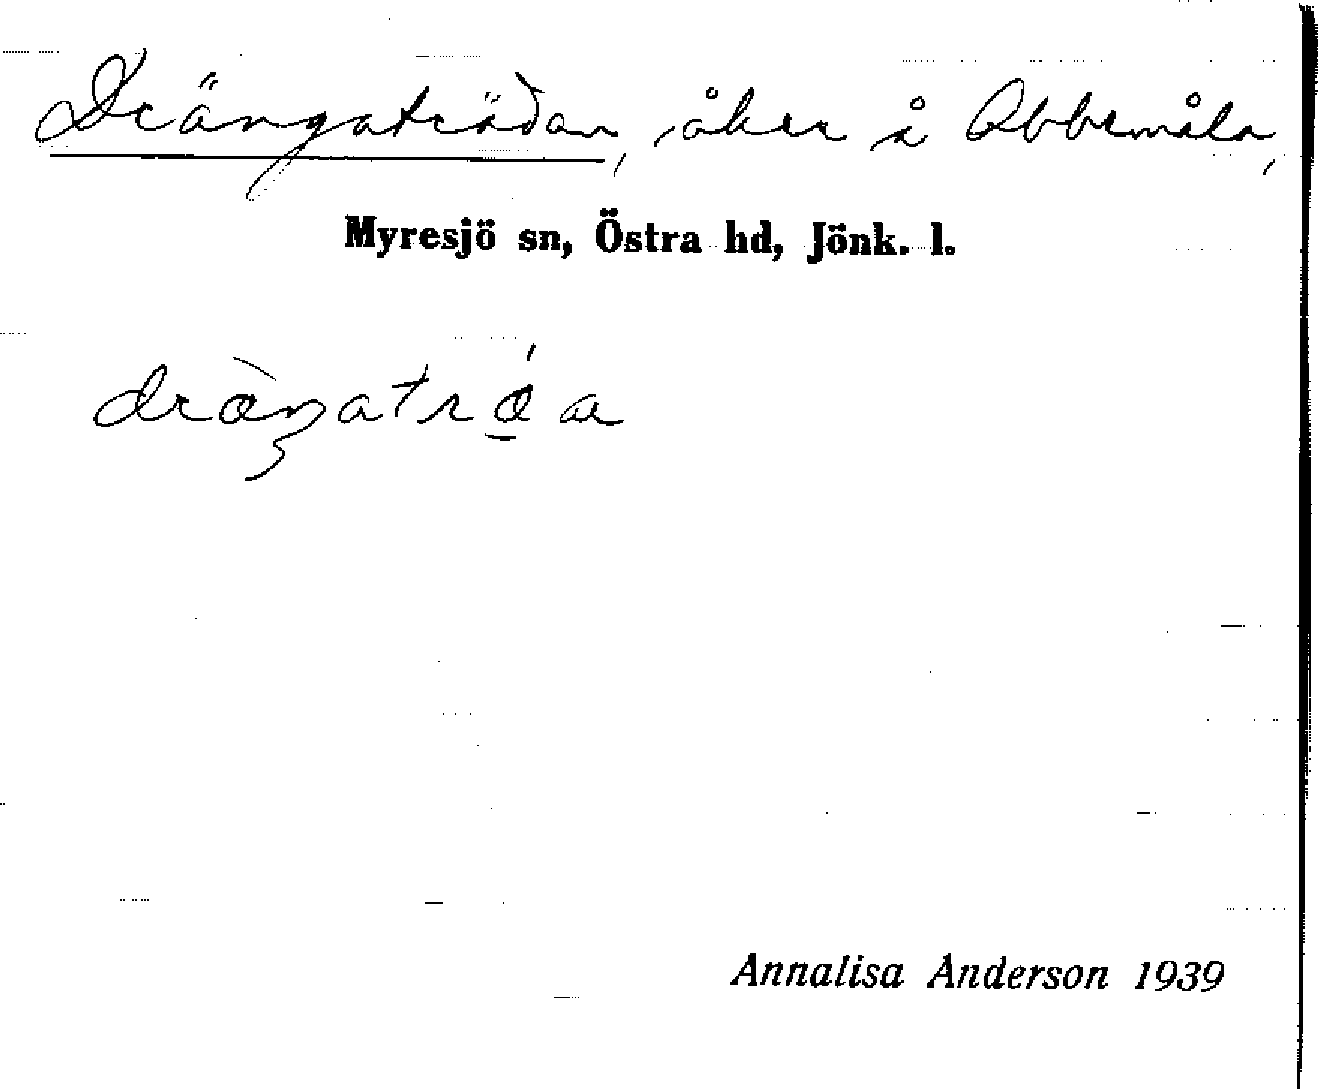 Drängaträdan, åker å Abbemåla,
Myresjö sn, Östra hd, Jönk. l.
Annalisa Anderson 1939